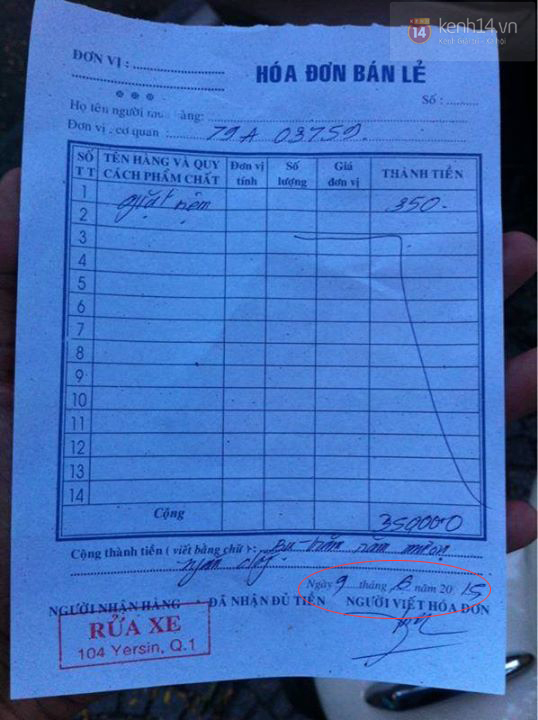 14 kenh14.vn
ĐƠN VỊ :
HÓA ĐƠN BÁN LẺ
Số :
Họ tên người mua hàng:
Đơn vị cơ quan 79A 03759.
SỐ TT TÊN HÀNG VÀ QUY CÁCH PHẨM CHẤT Đơn vị tính Số lượng Giá đơn vị THÀNH TIỀN
1 giặt nệm 350.
2
3
4
5
6
7
8
9
10
11
12
13
14
Cộng 350000
Cộng thành tiền ( viết bằng chữ ): Ba trăm năm mươi
ngàn
Ngày 9 tháng 6 năm 20 15
NGƯỜI NHẬN HÀNG ĐÃ NHẬN ĐỦ TIỀN NGƯỜI VIẾT HÓA ĐƠN
RỬA XE
104 Yersin, Q.1